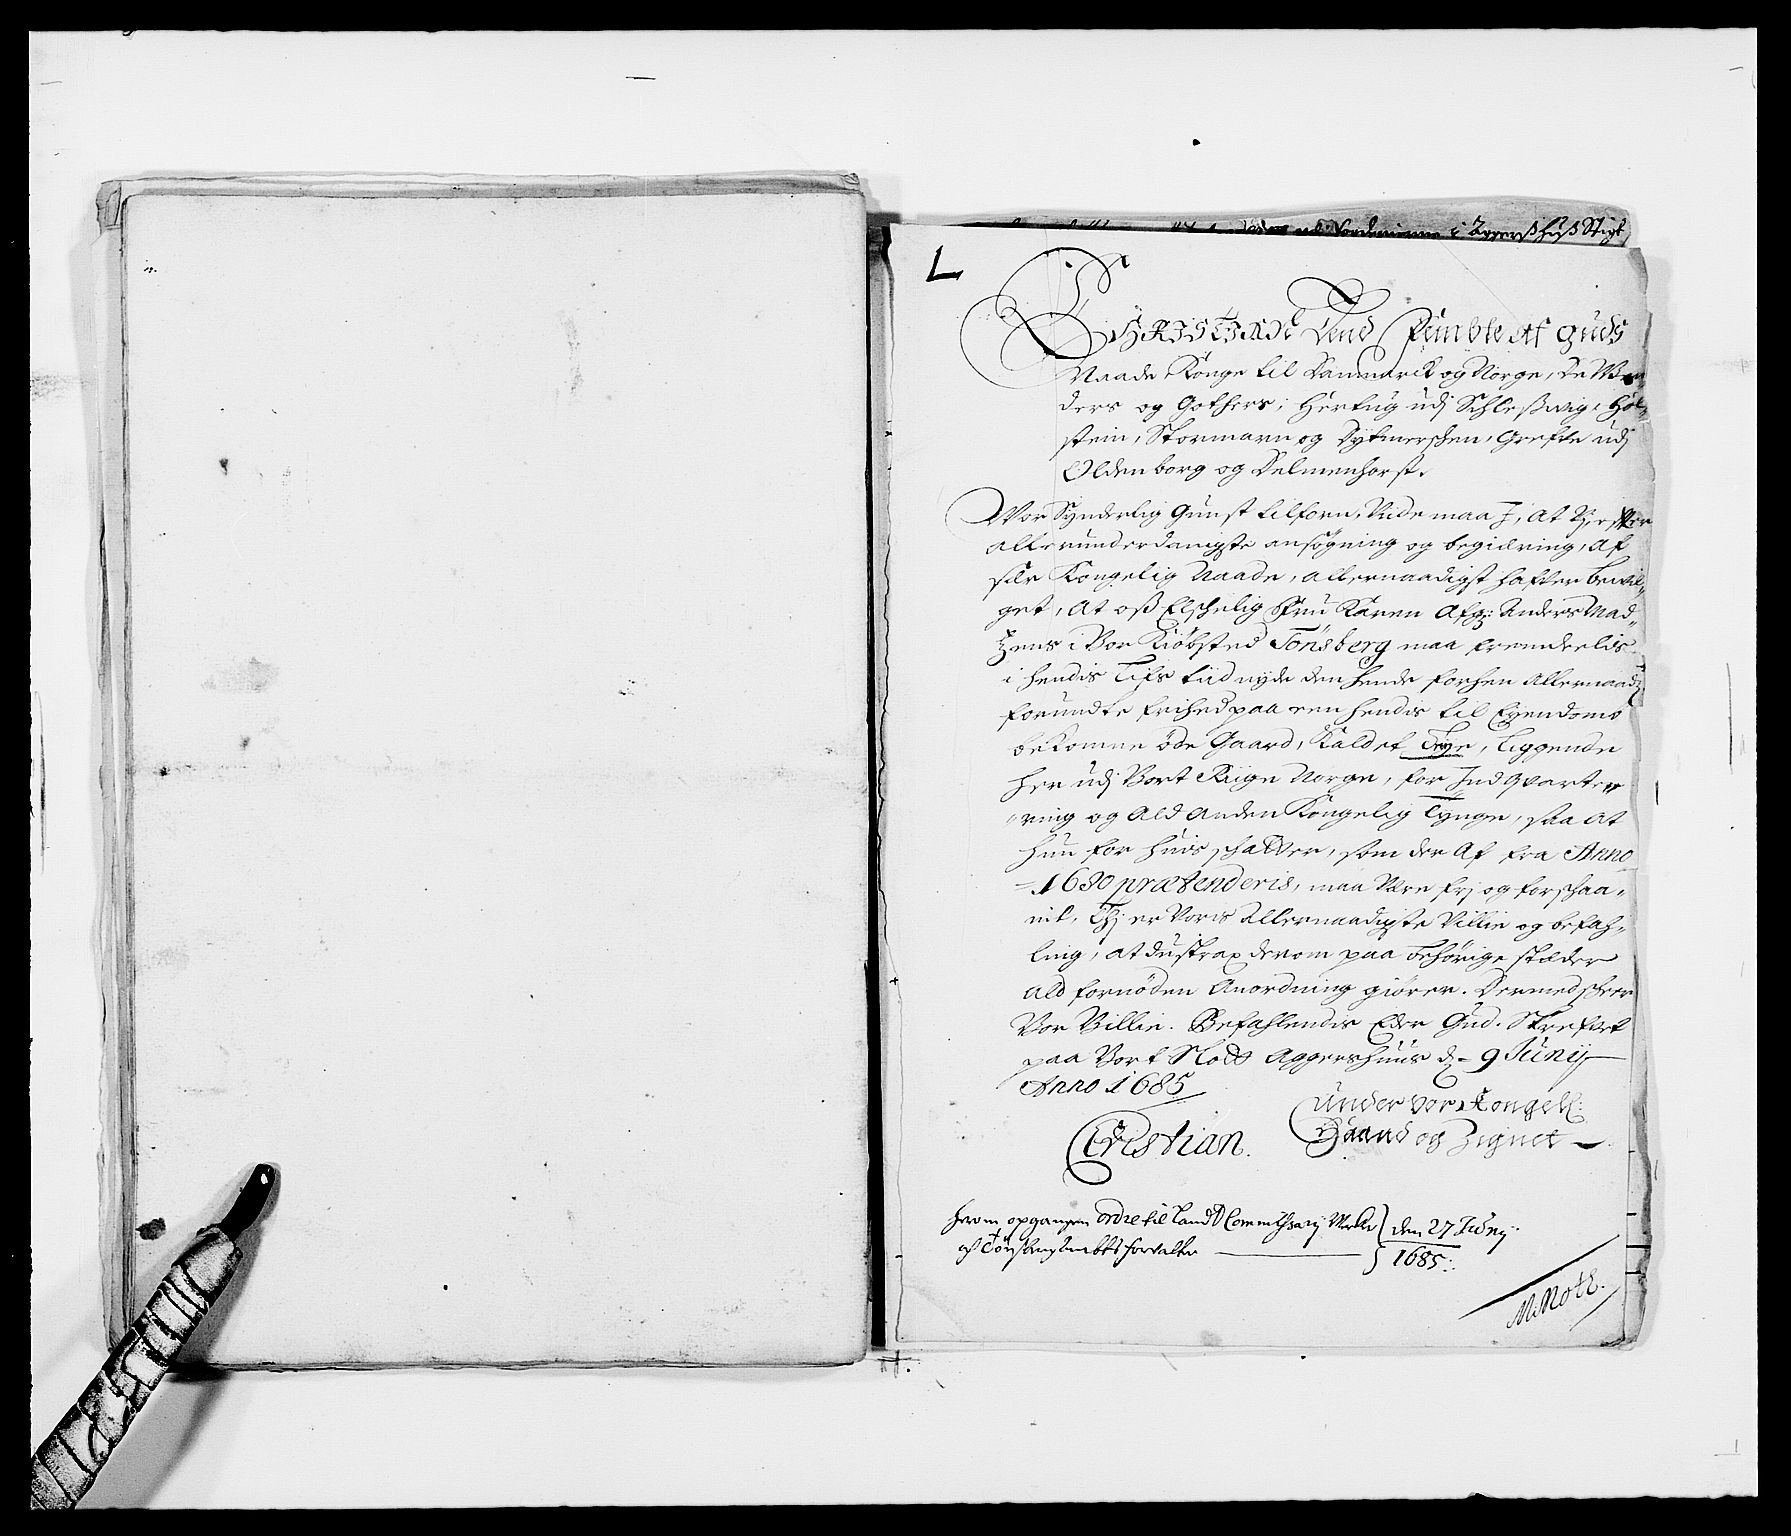 L
CHRISTIAN Dend Femble Af Guds
Naade Konge til Danmarck og Norge, De Wen
ders og Gothers; Hertug udj Schleßwig, Hol-
stein, Stormarn og Dytmerschen, Grefve udj
Oldenborg og Delmenhorst.
Wor Synderlig Gunst tilforn, Viide maa J, At Vj efter
allerunderdanigste ansøgning og begiæring, af
sær Kongelig Naade, allernaadigst hafver bevil-
get, At oß Elschelig Fru Karen Afg: Anders Mad-
zens i Vor Kiøbsted Tönsberg maa fremdeelis
i hendis Lifs tiid nyde den hende forhen Allernaadt
forundte frihed paa een hendis til Eyendomb
bekomne øde Gaard, Kaldet Teye, liggende
her udj Vort Riige Norge, for Indqvarte-
ring og Ald anden Kongelig Tynge, saa at
hun for huis schatter, som der Af fra Anno
1680 prætenderis, maa Være frj og forschaa-
nit, Thj er Voris allernaadigste Villie og befah-
ling, at du strax derom paa behörige stæder
ald fornöden Anordning giörer. Dermed scheer
Vor Villie. Befahlendis Eder Gud. Skrefvet
paa Vort Slott Aggershuus d: 9 Junij
Anno 1685
Under Vor Kongel:
Haand og Zignet
Christian.
herom opgangen ordre til Land Commissarj den 27 Junij
1685
M Moth.